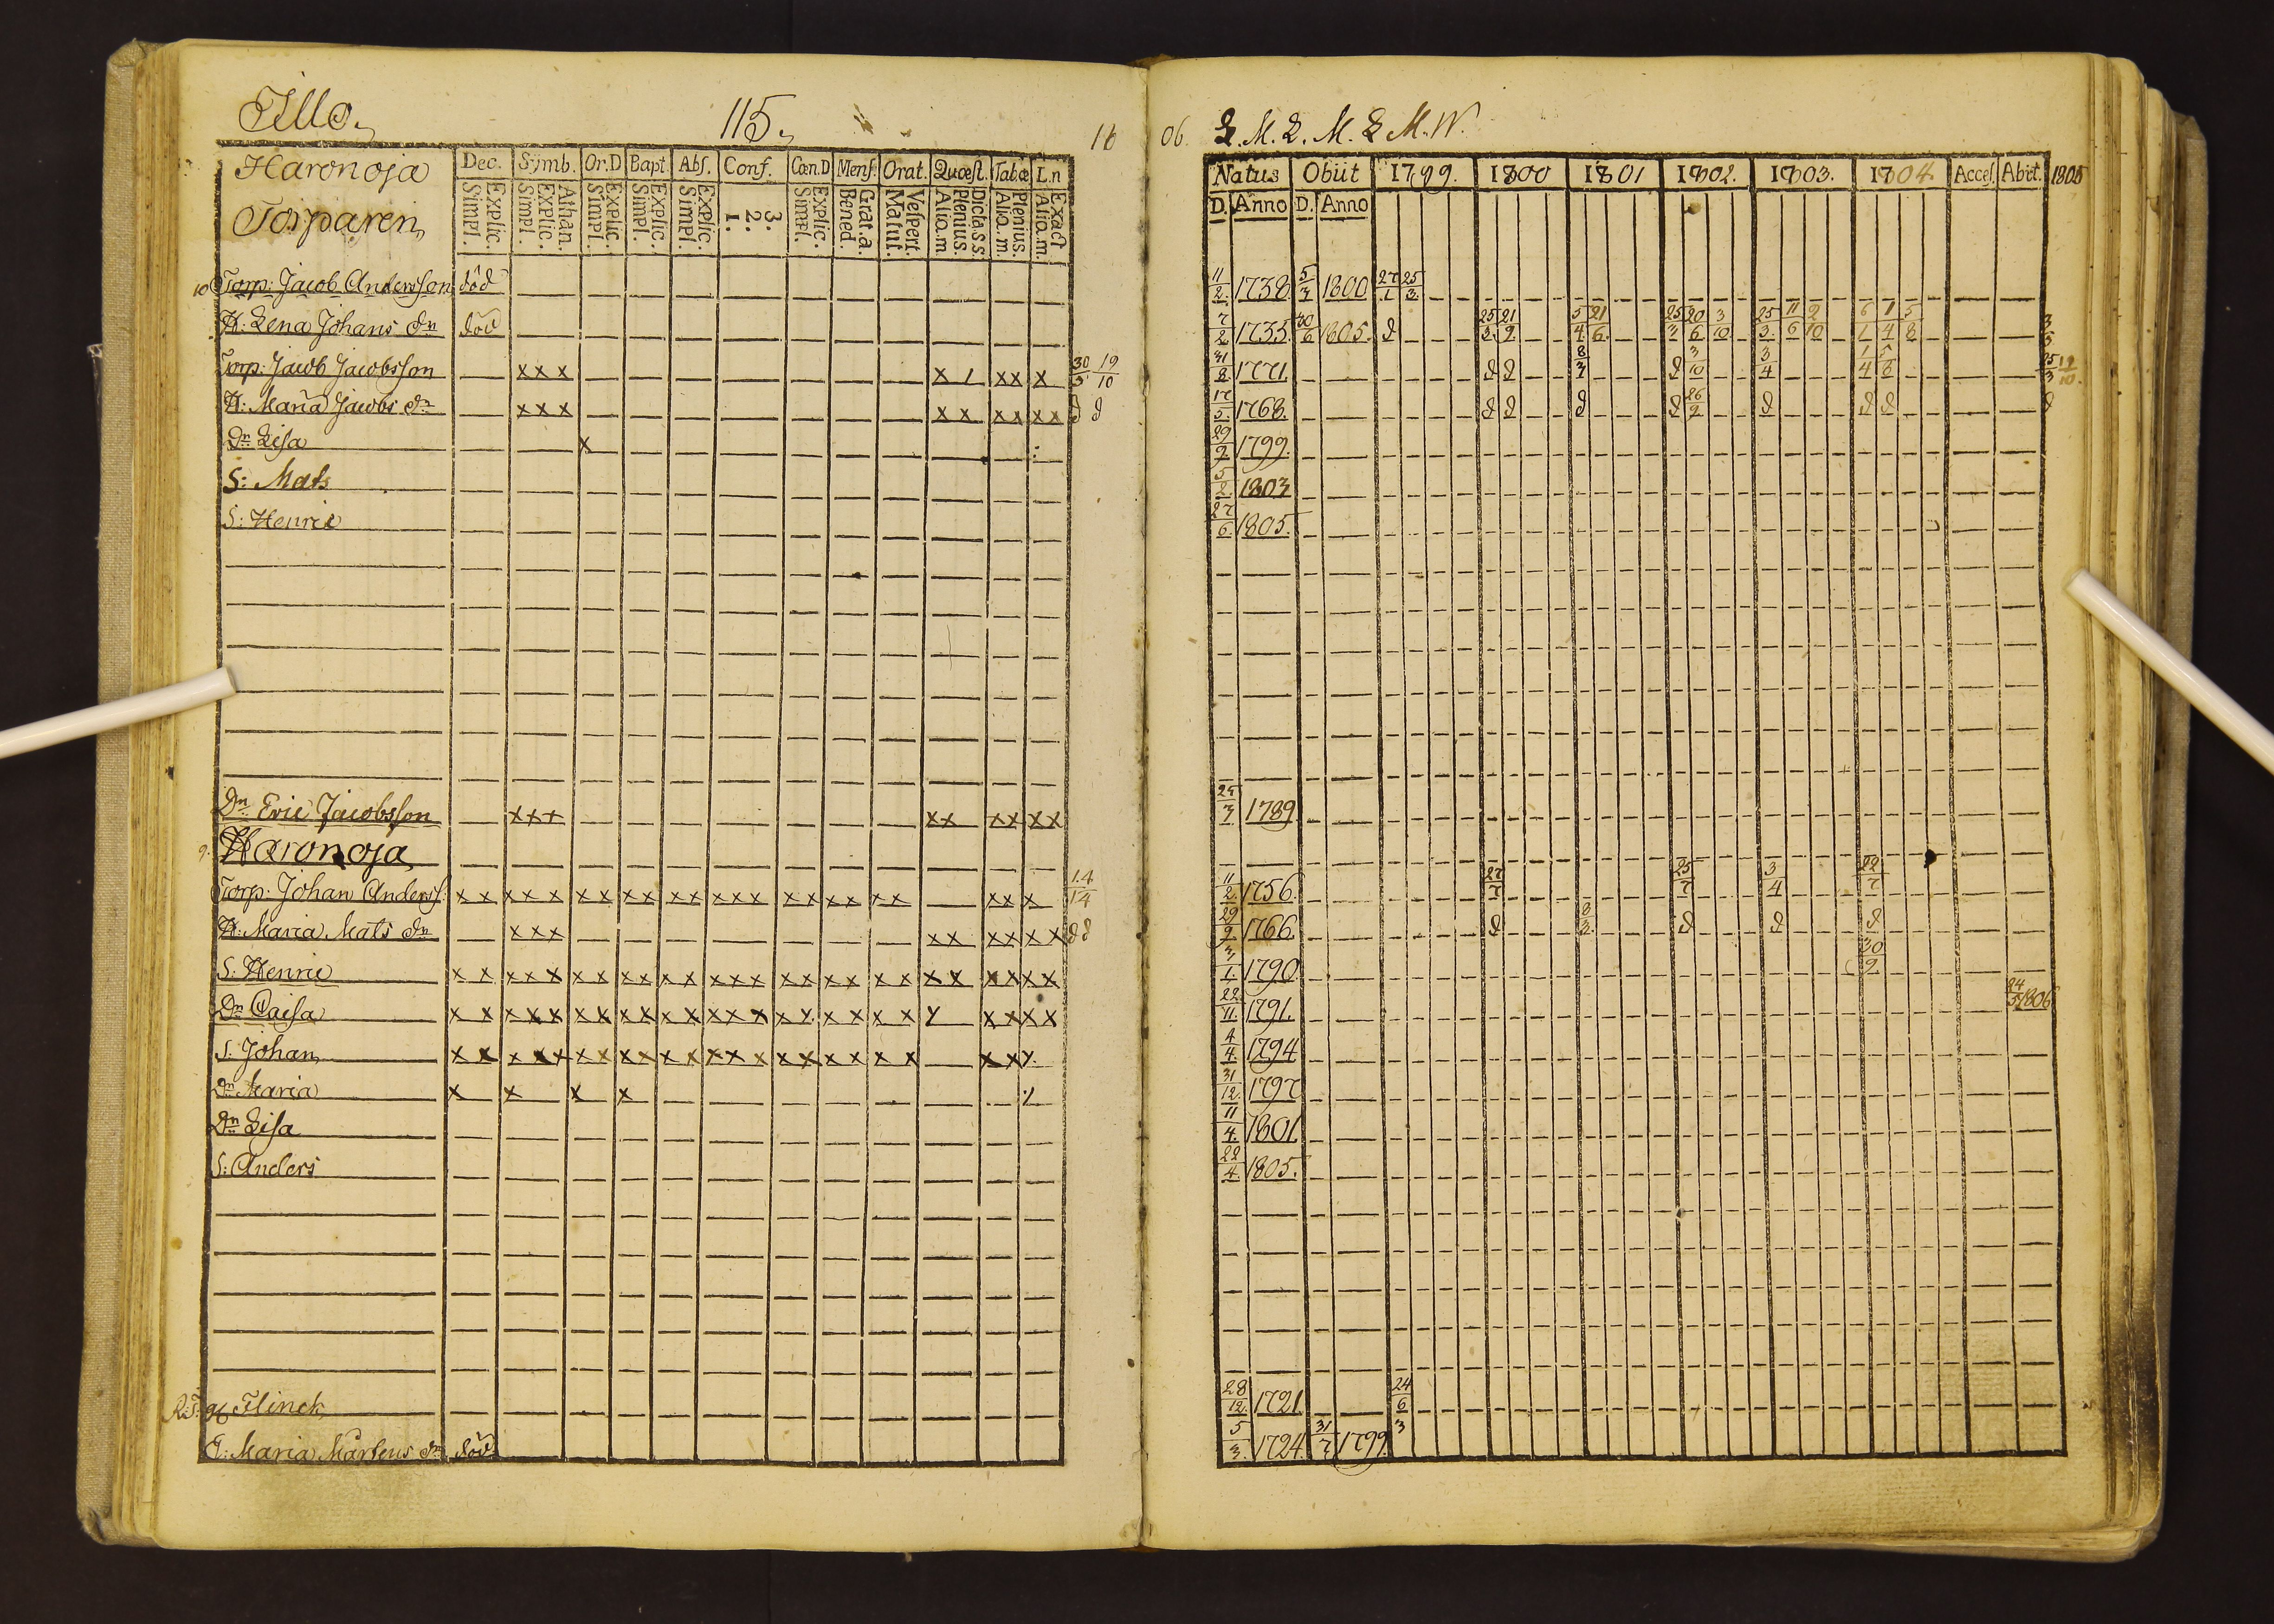 Illo. 115. 18 06. L. M. L. M. L M. W.
Haronoja Dec. Symb. Or.D Bapt. Abſ. Conf. Cœn.D Menſ. Orat. Quœſt. Tabœ L.n Natus Obiit 1799. 1800 1801 1802. 1803. 1804 Acceſ. Abiit. 1805
Torparen Explic. Simpl. Athan. Explic. Simpl. Explic. Simpl. Explic. Simpl. Explic. Simpl. 3. 2. 1. Explic. Simpl. Grat. a. Bened. Veſpert. Matut. Dicta s.s. Plenius. Aliq.m Plenius. Aliq.m. Exact Aliq.m. D. Anno D. Anno
10 Torp: Jacob Andersſon död 11/2. 1738. 5/3 1800 27/1 25/3.
H: Lena Johans dr död 7/2 1735. 30/6 1805. d 25/3. 21/9 5/4 21/6. 25/3 20/6 3/10 25/3. 11/6 2/10 6/1 1/4 5/8 3/3
Torp: Jacob Jacobsſon x x x x / xx x 30/3 19/10 31/8. 1771. d d 8/3 d 3/10 3/4 1/4 5/8 25/3 19/10.
H: Maria Jacobs dr x x x x x xx xx d d 17/5. 1768. d d d d 26/9 d d d d
Dr Liſa x 29/9. 1799.
S: Mats 5/2 1803
S: Henric 27/6 1805.
Dr Eric Jacobsſon xxx xx xx xx 25/3 1789.
9. Haronoja
Torp: Johan Andersſ: x x x x x x x x x x x x x x x x x x x x x x x x 14/14 11/2. 1756. 27/7 25/7 3/4 22/7
H: Maria Mats dr x x x x x x x x x d d 29/9 1766. d 8/3 d d d
S: Henric x x x x x x x x x x x x x x x x x x x x x x x x x x 3/1. 1790. 30/9
Dr Caiſa x x x x x x x x x x x x x x x x x x x x y x x x x 22/11. 1791. 24/5 1806
S: Johan x x x x x x x x x x x x x x x x x x x x x x y. 4/4. 1794
Dr Maria x x x x y 31/12. 1797
Dr Liſa 11/4. 1801.
S: Anders 22/4. 1805.
Flinck 28/12. 1721. 24/6
E: Maria Mårtens dr död 5/3. 1724. 31/7 1799. 3